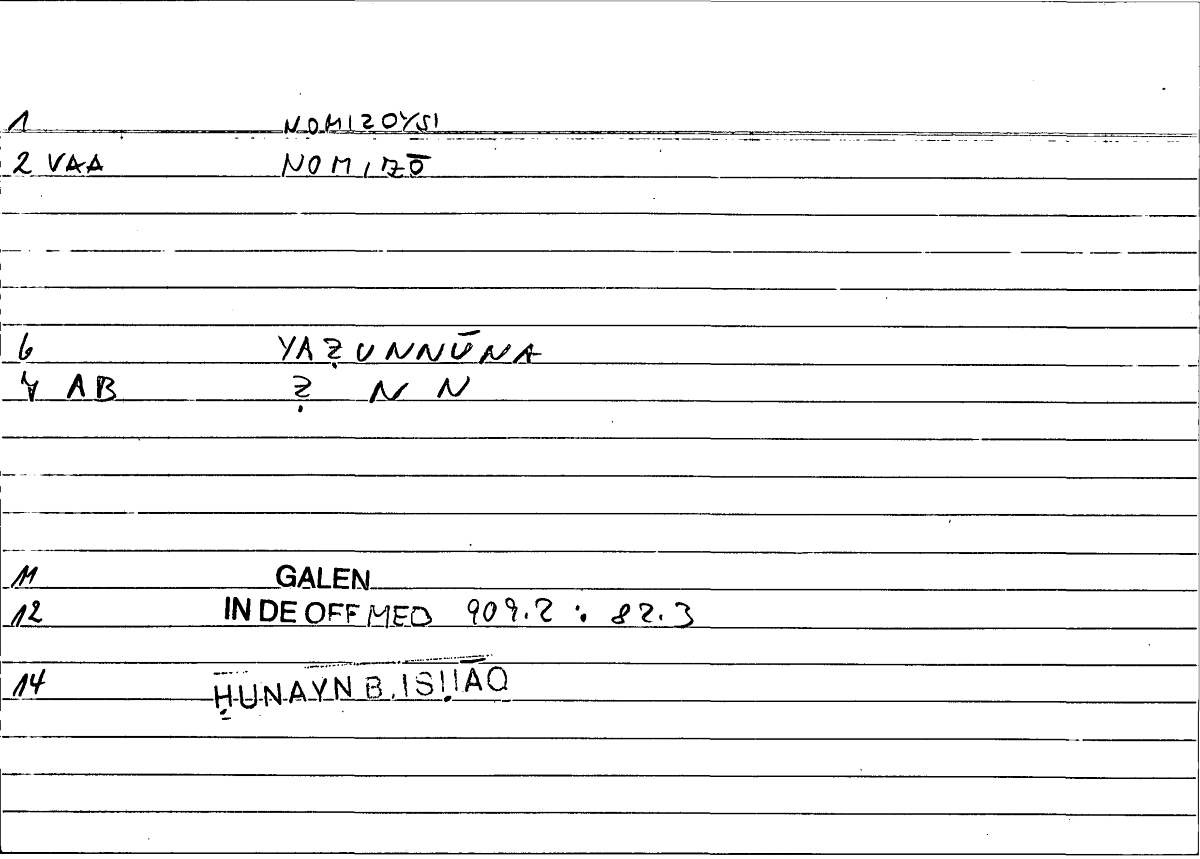 1 NOMIZOYSI
2 VAA NOMIZŌ
6 YAẒUNNŪNA
7 AB Ẓ N N
11 GALEN
12 IN DE OFF MED 909.2 : 82.3
14 ḤUNAYN B. ISḤĀQ